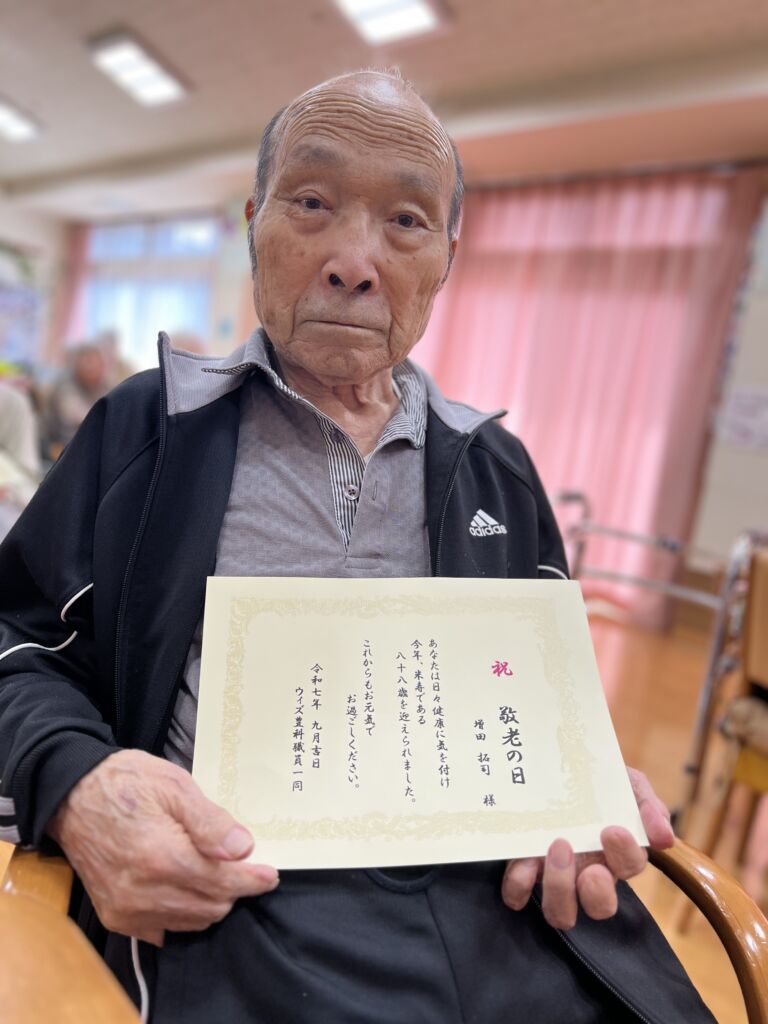 祝 敬老の日
増田 拓司 様
あなたは日々健康に気を付け
今年、米寿である
八十八歳を迎えられました。
これからもお元気で
お過ごしください。
令和七年 九月吉日
ウィズ豊科職員一同
adidas